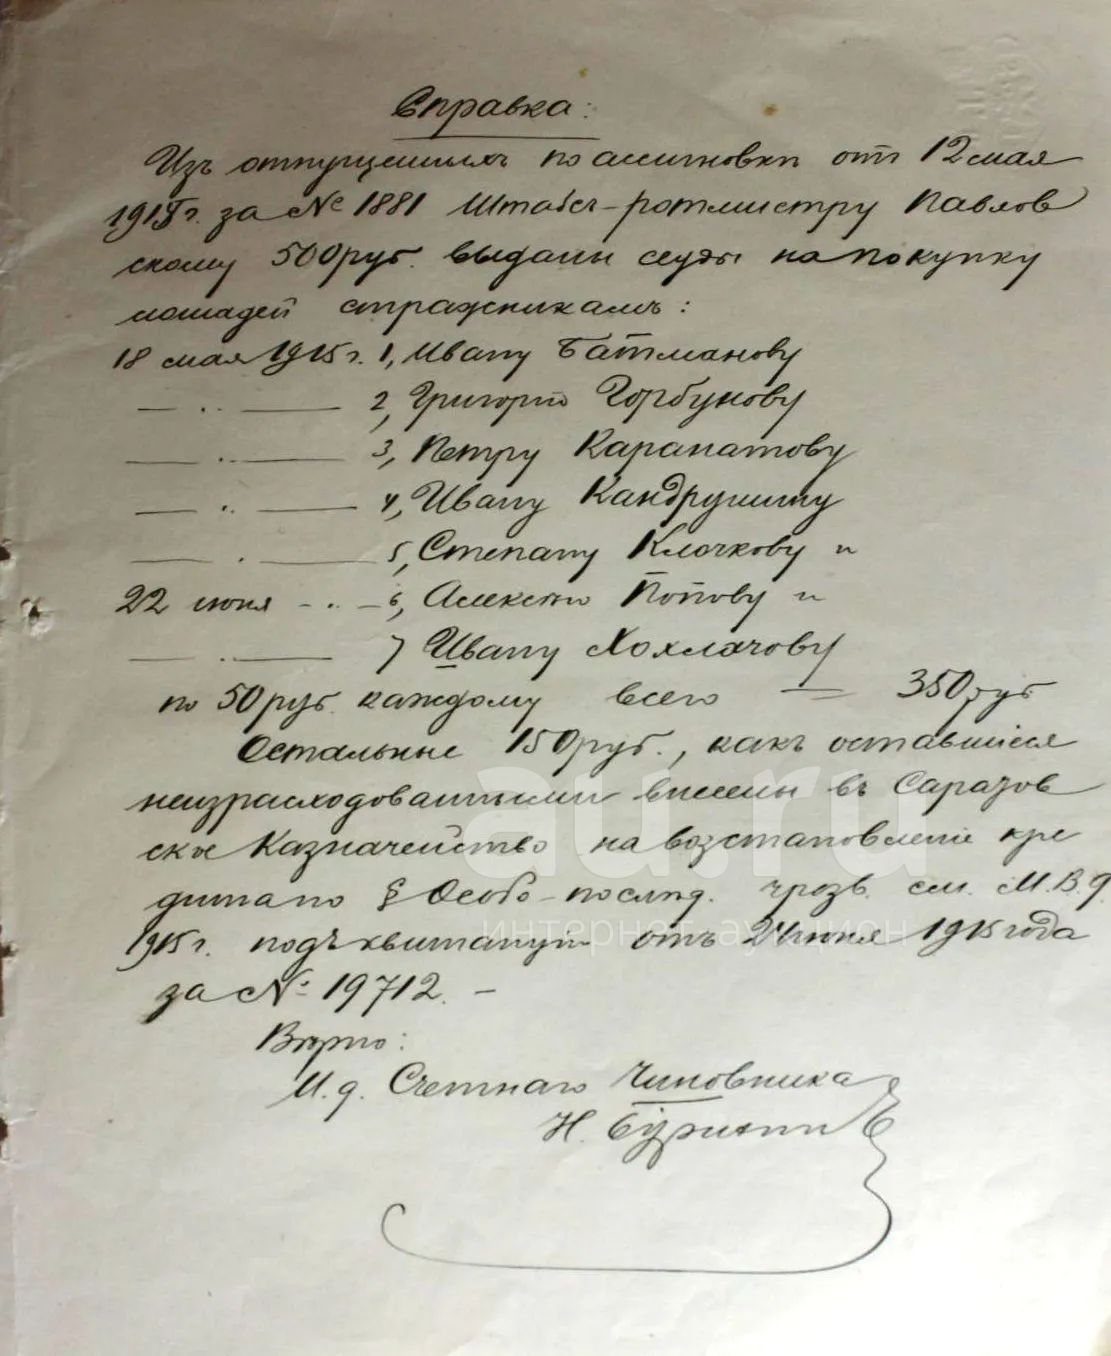 Справка:
Изъ отпущенныхъ по ассигновки отъ 12 мая
1915 г. за № 1881 Штабсъ-ротмистру Павлов
скому 500 руб. выданы ссуды на покупку
лошадей стражникамъ:
18 мая 1915 г. 1, Ивану Батманову
— „ — 2, Григорію Горбунову
— „ — 3, Петру Карапатову
— „ — 4, Ивану Кандрушину
— „ — 5, Степану Клочкову и
22 июня — „ — 6, Алексею Попову и
— „ — 7 Ивану Хохлачову
по 50 руб. каждому всего — 350 руб
Остальные 150 руб., какъ оставшіеся
неизрасходованными внесены въ Саратов
ское Казначейство на возстановленіе кре
дита по § Особо-послѣд. чрезв. см. М.В.Д
1915 г. подъ квитанцію отъ 24 июня 1915 года
за № 19712. —
Вѣрно:
И. д. Счетнаго Чиновника
Н.
au.ru
интернет-аукцион